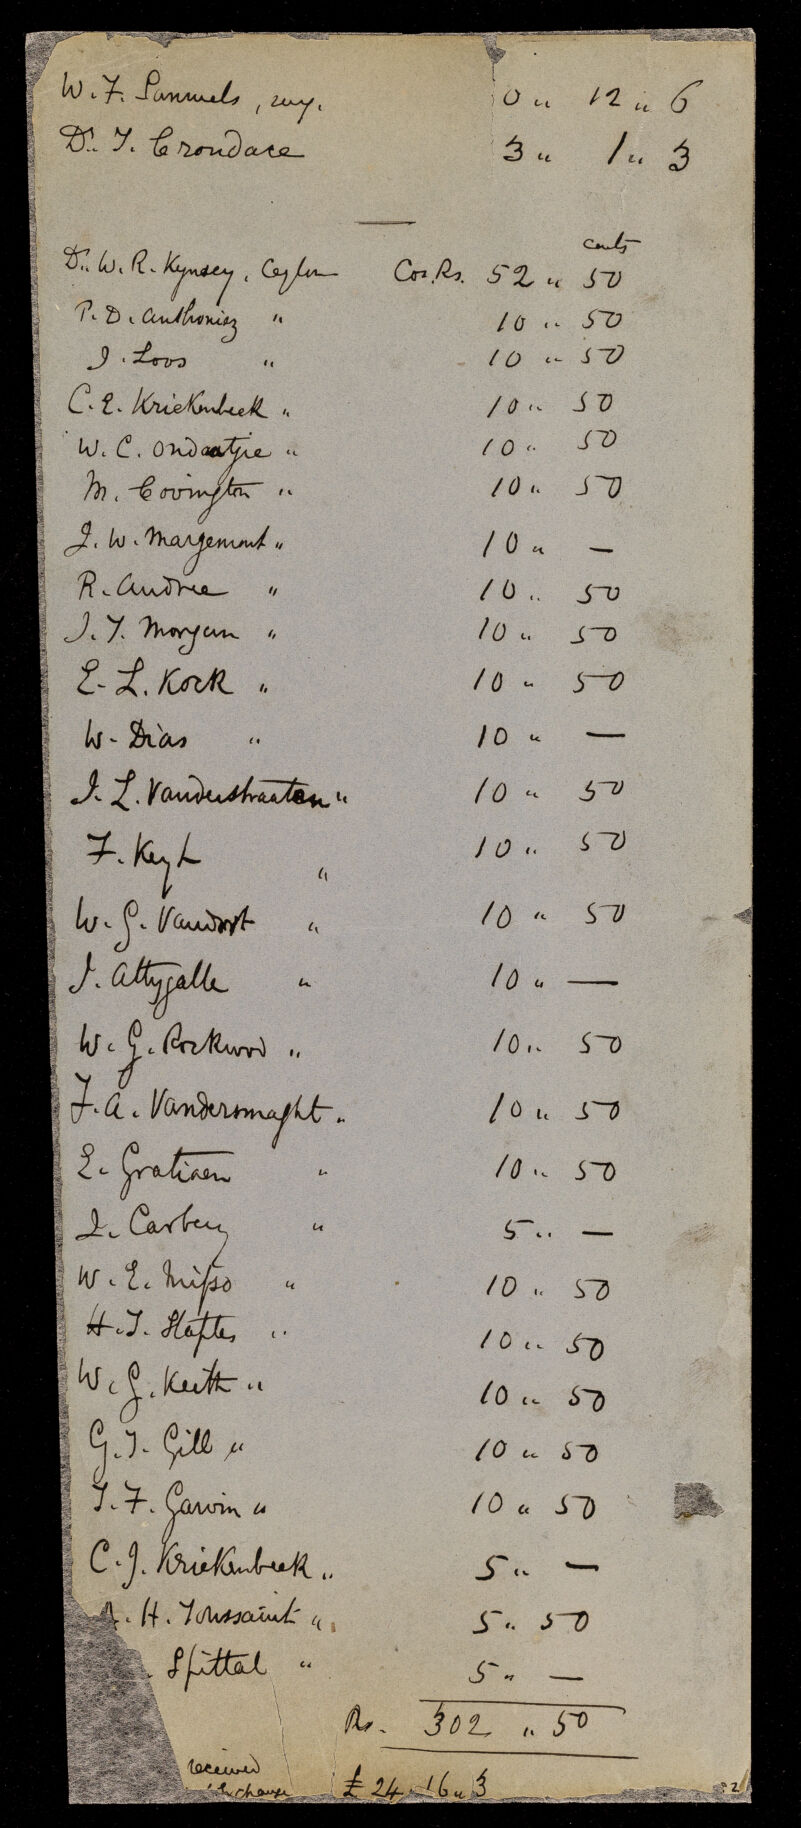 W. F. Sammels, 
0 " 12 " 6
Dr. T. Crondace 3 " 1 " 3
cents
Dr. W. R. Kynsey, Ceylon Cos. Rs. 52 " 50
P. D. Anthonisz " 10 " 50
J. Loos " 10 " 50
C. E. Kriekenbeek " 10 " 50
W. C. Ondaatjie " 10 " 50
M. Covington " 10 " 50
J. W. Margenout " 10 " —
R. Andree " 10 " 50
J. T. Morgan " 10 " 50
E. L. Kock " 10 " 50
W. Dias " 10 " —
J. L. Vanderstraaten " 10 " 50
F. Keyt " 10 " 50
W. G. Vandort " 10 " 50
J. Attygalle " 10 " —
W. G. Rockwood " 10 " 50
F. A. Vandersmaght " 10 " 50
E. Gratiaen " 10 " 50
J. Carbery " 5 " —
W. E. Misso " 10 " 50
H. T. Staples " 10 " 50
W. G. Keith " 10 " 50
G. T. Gill " 10 " 50
T. F. Garvin " 10 " 50
C. J. Kriekenbeek " 5 " —
H. Toussaint " 5 " 50
Spittal " 5 " —
Rs. 302 " 50
received
Exchange £ 24 " 16 " 3